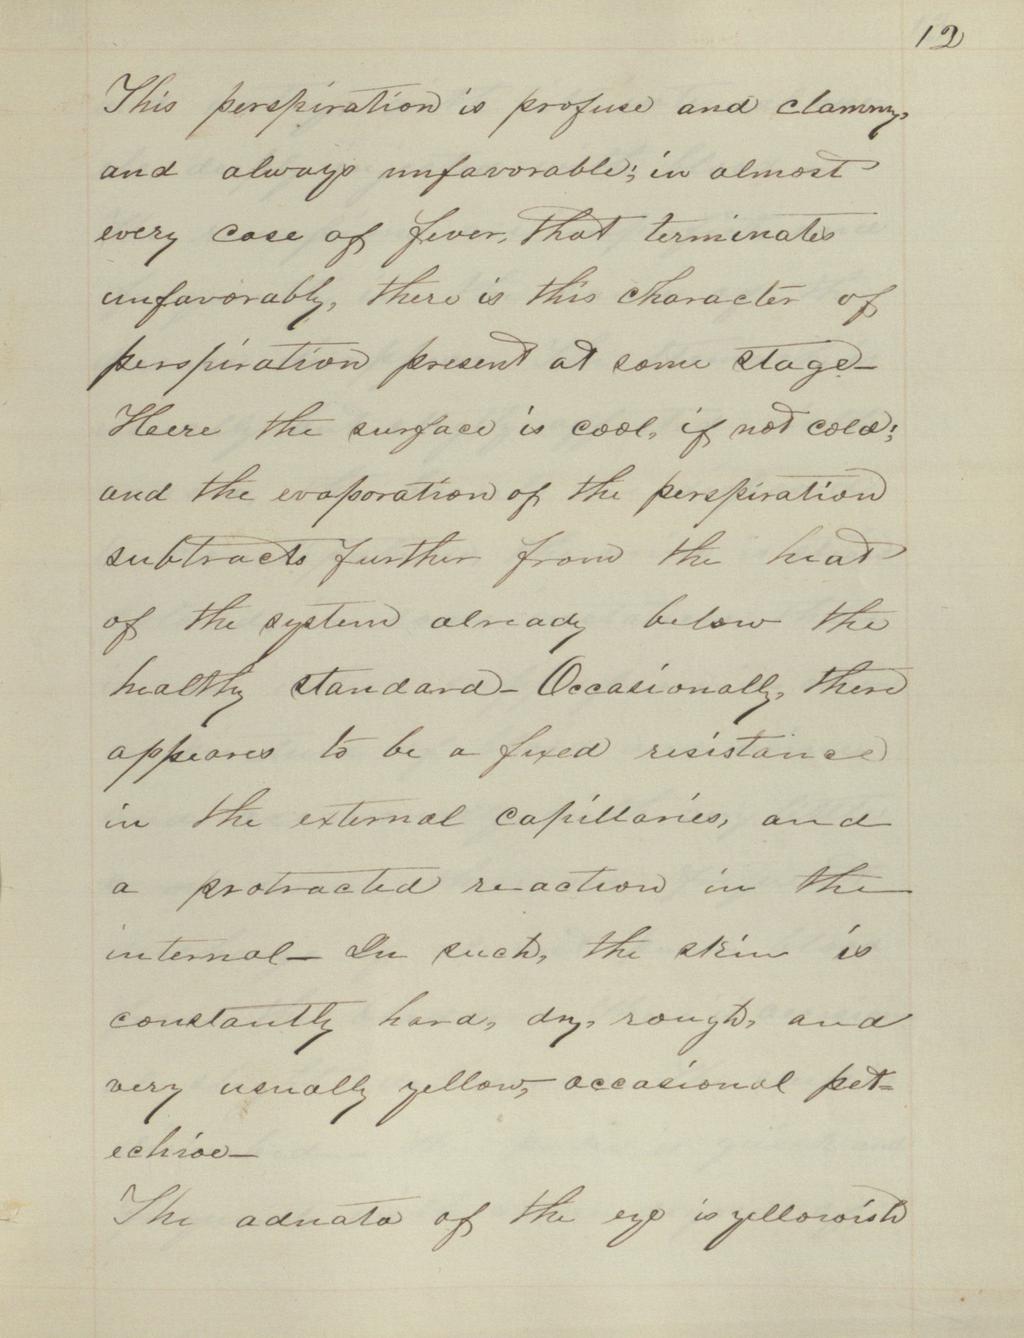 12
This perspiration is profuse and clammy,
and always unfavorable; in almost
every case of fever, that terminates
unfavorably, there is this character of
perspiration present at some stage—
Here the surface is cool, if not cold;
and the evaporation of the perspiration
subtracts further from the heat
of the system already below the
healthy standard— Occasionally, there
appears to be a fixed resistance
in the external capillaries, and
a protracted reaction in the
internal— In such, the skin is
constantly hard, dry, rough, and
very usually yellow, occasional pet=
echiae—
The adnata of the eye is yellowish